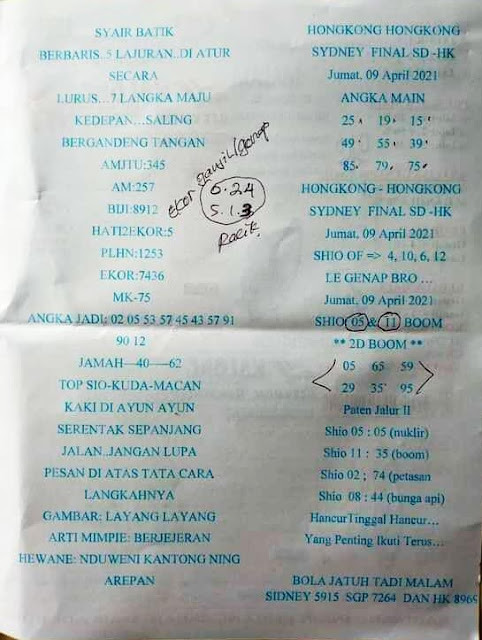 SYAIR BATIK
BERBARIS..5 LAJURAN..DI ATUR
SECARA
LURUS...7 LANGKA MAJU
KEDEPAN...SALING
BERGANDENG TANGAN
AMJTU:345
AM:257
BIJI:8912
HATI2EKOR:5
PLHN:1253
EKOR:7436
MK-75
ANGKA JADI; 02 05 53 57 45 43 57 91
90 12
JAMAH—40 ----62
TOP SIO-KUDA-MACAN
KAKI DI AYUN AYUN
SERENTAK SEPANJANG
JALAN..JANGAN LUPA
PESAN DI ATAS TATA CARA
LANGKAHNYA
GAMBAR: LAYANG LAYANG
ARTI MIMPIE: BERJEJERAN
HEWANE: NDUWENI KANTONG NING
AREPAN
Ekor ganjil/genap
6.24
5.1.3
Racik
HONGKONG HONGKONG
SYDNEY FINAL SD -HK
Jumat, 09 April 2021
ANGKA MAIN
25 19 15
49 55 39
85 79 75
HONGKONG - HONGKONG
SYDNEY FINAL SD -HK
Jumat, 09 April 2021
SHIO OF => 4, 10, 6, 12
LE GENAP BRO ...
Jumat, 09 April 2021
SHIO 05 & 11 BOOM
** 2D BOOM **
05 65 59
29 35 95
Paten Jalur II
Shio 05 : 05 (nuklir)
Shio 11 : 35 (boom)
Shio 02 ; 74 (petasan
Shio 08 : 44 (bunga api)
HancurTinggal Hancur...
Yang Penting Ikuti Terus...
BOLA JATUH TADI MALAM
SIDNEY 5915 SGP 7264 DAN HK 8969